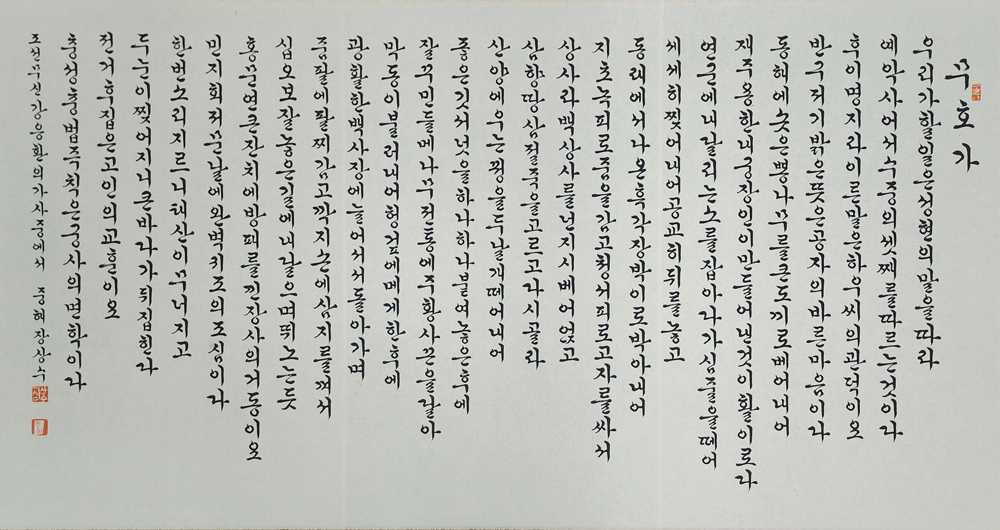 무호가
우리가 할 일은 성현의 말을 따라
예악사어서수 중의 셋째를 따르는 것이라
후이명지라 이른 말은 하우씨의 관덕이오
반구저기 밝은 뜻은 공자의 바른 마음이라
동해에 솟은 뽕나무를 큰 도끼로 베어내어
재주용한 내궁장인이 만들어낸 것이 활이로라
연군에 내달리는 소를 잡아다가 심줄을 떼어
세세히 찢어내어 공교히 뒤를 놓고
동래에서 나온 흑각 장박이로 박아내어
지초녹피로 줌을 감고 청서피로 고자를 싸서
상사라 백상사를 넌지시 베어 얹고
삼향땅 삼절죽을 고르고 다시 골라
산양에 우는 꿩을 두 날개 떼어내어
좋은 깃 서넛을 하나하나 붙여 놓은 후에
잘 꾸민 들메나무 전동에 주황사 끈을 달아
막동이 불러내어 헝겊에 메게 한 후에
광활한 백사장에 늘어서서 돌아가며
줌팔에 팔찌 감고 깍지손에 삼지를 껴서
십오보 잘 놓은 길에 내달으며 뛰노는듯
홍문연 큰 잔치에 방패를 낀 장사의 거동이오
민지회 저문 날에 와벽귀조의 조심이라
한번 소리지르니 태산이 무너지고
두 눈이 찢어지니 큰 바다가 뒤집힌다
전거후집은 고인의 교훈이오
충성홍범 족척은 궁사의 면학이라
조선무선 강응환의 가사 중에서 중혜 장상수